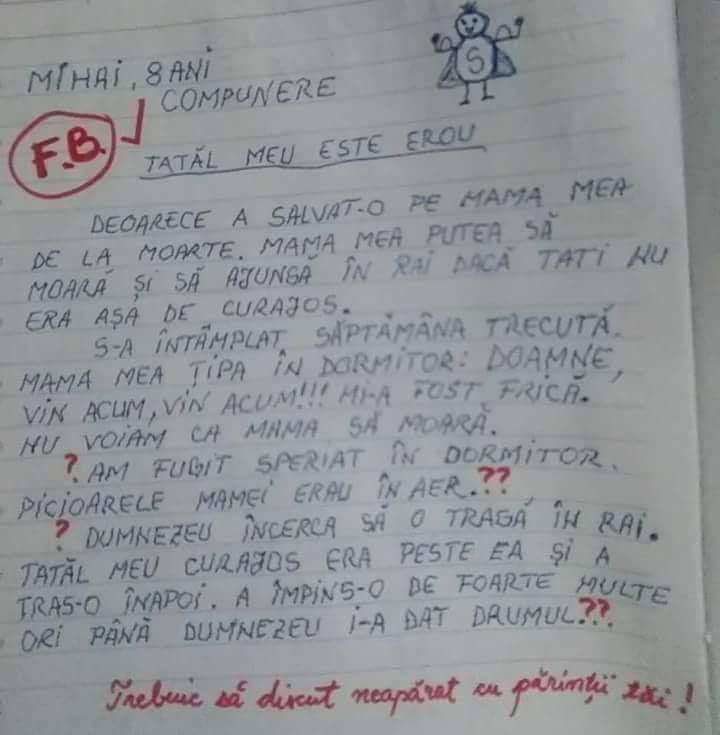 S
MIHAI, 8 ANI
COMPUNERE
F.B.
TATĂL MEU ESTE EROU
DEOARECE A SALVAT-O PE MAMA MEA
DE LA MOARTE. MAMA MEA PUTEA SĂ
MOARĂ ȘI SĂ AJUNGĂ ÎN RAI DACĂ TATI NU
ERA AȘA DE CURAJOS.
S-A ÎNTÂMPLAT SĂPTĂMÂNA TRECUTĂ.
MAMA MEA ȚIPA ÎN DORMITOR: DOAMNE,
VIN ACUM, VIN ACUM!!! MI-A FOST FRICĂ.
NU VOIAM CA MAMA SĂ MOARĂ.
? AM FUGIT SPERIAT ÎN DORMITOR.
PICIOARELE MAMEI ERAU ÎN AER.??
? DUMNEZEU ÎNCERCA SĂ O TRAGĂ ÎN RAI.
TATĂL MEU CURAJOS ERA PESTE EA ȘI A
TRAS-O ÎNAPOI. A ÎMPINS-O DE FOARTE MULTE
ORI PÂNĂ DUMNEZEU I-A DAT DRUMUL.??
Trebuie să discut neapărat cu părinții tăi!